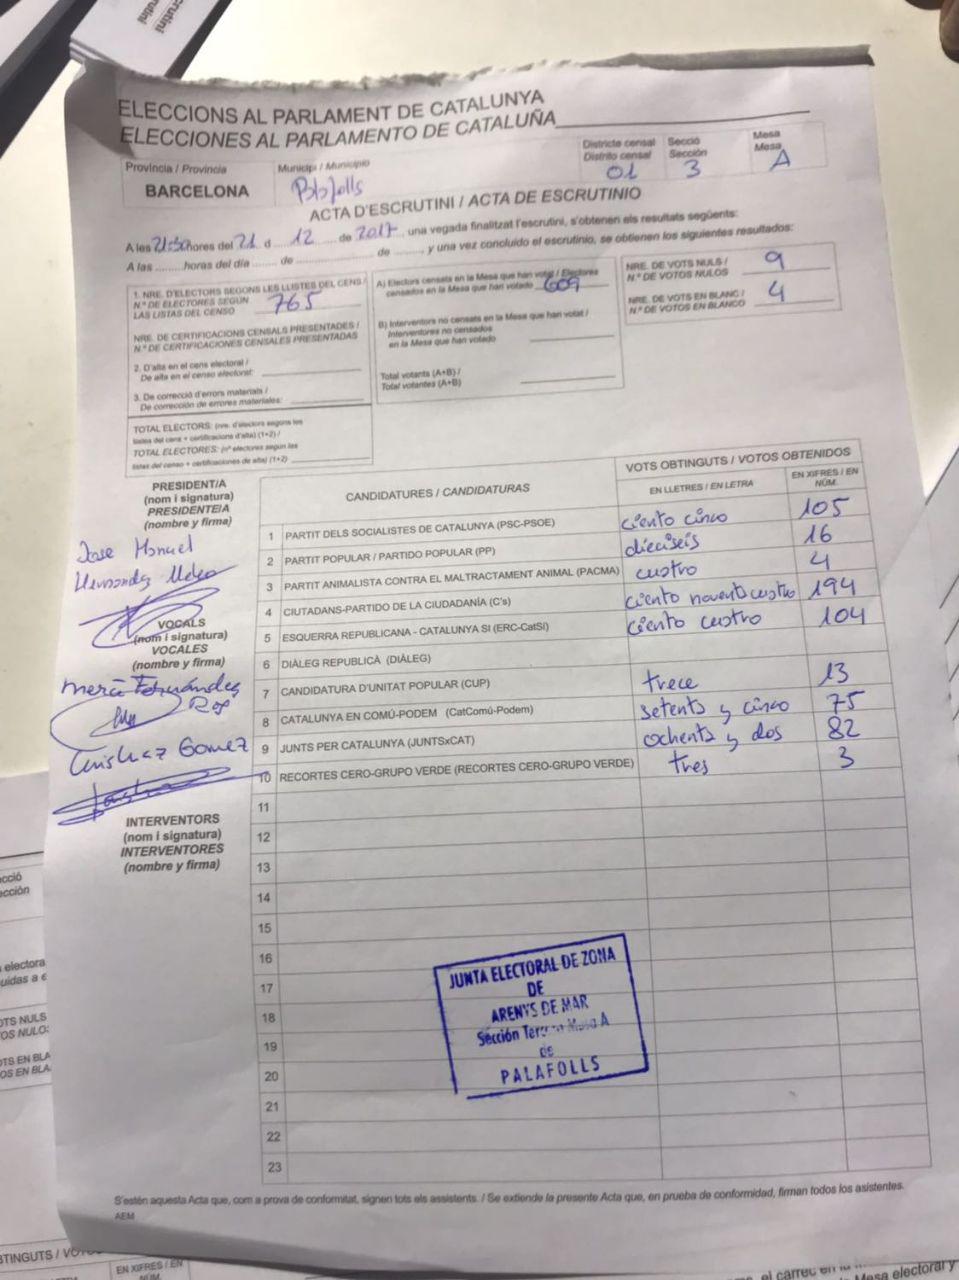 ELECCIONS AL PARLAMENT DE CATALUNYA
ELECCIONES AL PARLAMENTO DE CATALUÑA
Província / Provincia
BARCELONA
Municipi / Municipio
Palafolls
Districte censal
Distrito censal
01
Secció
Sección
3
Mesa
Mesa
A
ACTA D'ESCRUTINI / ACTA DE ESCRUTINIO
A les 21:30 hores del 21 d 12 de 2017, una vegada finalitzat l'escrutini, s'obtenen els resultats següents:
A las ........ horas del día ....... de .................... de ........, y una vez concluido el escrutinio, se obtienen los siguientes resultados:
1. NRE. D'ELECTORS SEGONS LES LLISTES DEL CENS /
N.º DE ELECTORES SEGÚN
LAS LISTAS DEL CENSO 765
NRE. DE CERTIFICACIONS CENSALS PRESENTADES /
N.º DE CERTIFICACIONES CENSALES PRESENTADAS
2. D'alta en el cens electoral /
De alta en el censo electoral:
3. De correcció d'errors materials /
De corrección de errores materiales:
TOTAL ELECTORS: (nre. d'electors segons les
llistes del cens + certificacions d'alta) (1+2) /
TOTAL ELECTORES: (nº electores según las
listas del censo + certificaciones de alta) (1+2)
A) Electors censats en la Mesa que han votat / Electores
censados en la Mesa que han votado 609
B) Interventors no censats en la Mesa que han votat /
Interventores no censados
en la Mesa que han votado
Total votants (A+B) /
Total votantes (A+B)
NRE. DE VOTS NULS /
N.º DE VOTOS NULOS 9
NRE. DE VOTS EN BLANC /
N.º DE VOTOS EN BLANCO 4
PRESIDENT/A
(nom i signatura)
PRESIDENTE/A
(nombre y firma)
Jose Manuel
Hernandez
VOCALS
(nom i signatura)
VOCALES
(nombre y firma)
Mercè Fernández
Gomez
INTERVENTORS
(nom i signatura)
INTERVENTORES
(nombre y firma)
CANDIDATURES / CANDIDATURAS
VOTS OBTINGUTS / VOTOS OBTENIDOS
EN LLETRES / EN LETRA
EN XIFRES / EN
NÚM.
1 PARTIT DELS SOCIALISTES DE CATALUNYA (PSC-PSOE) ciento cinco 105
2 PARTIT POPULAR / PARTIDO POPULAR (PP) dieciseis 16
3 PARTIT ANIMALISTA CONTRA EL MALTRACTAMENT ANIMAL (PACMA) cuatro 4
4 CIUTADANS-PARTIDO DE LA CIUDADANÍA (C's) ciento noventa cuatro 194
5 ESQUERRA REPUBLICANA - CATALUNYA SI (ERC-CatSI) ciento cuatro 104
6 DIÀLEG REPUBLICÀ (DIÀLEG)
7 CANDIDATURA D'UNITAT POPULAR (CUP) trece 13
8 CATALUNYA EN COMÚ-PODEM (CatComú-Podem) setenta y cinco 75
9 JUNTS PER CATALUNYA (JUNTSxCAT) ochenta y dos 82
10 RECORTES CERO-GRUPO VERDE (RECORTES CERO-GRUPO VERDE) tres 3
11
12
13
14
15
16
17
18
19
20
21
22
23
JUNTA ELECTORAL DE ZONA
DE
ARENYS DE MAR
Sección Tercera Mesa A
de
PALAFOLLS
S'estén aquesta Acta que, com a prova de conformitat, signen tots els assistents. / Se extiende la presente Acta que, en prueba de conformidad, firman todos los asistentes.
AEM
EN XIFRES / EN
NÚM.